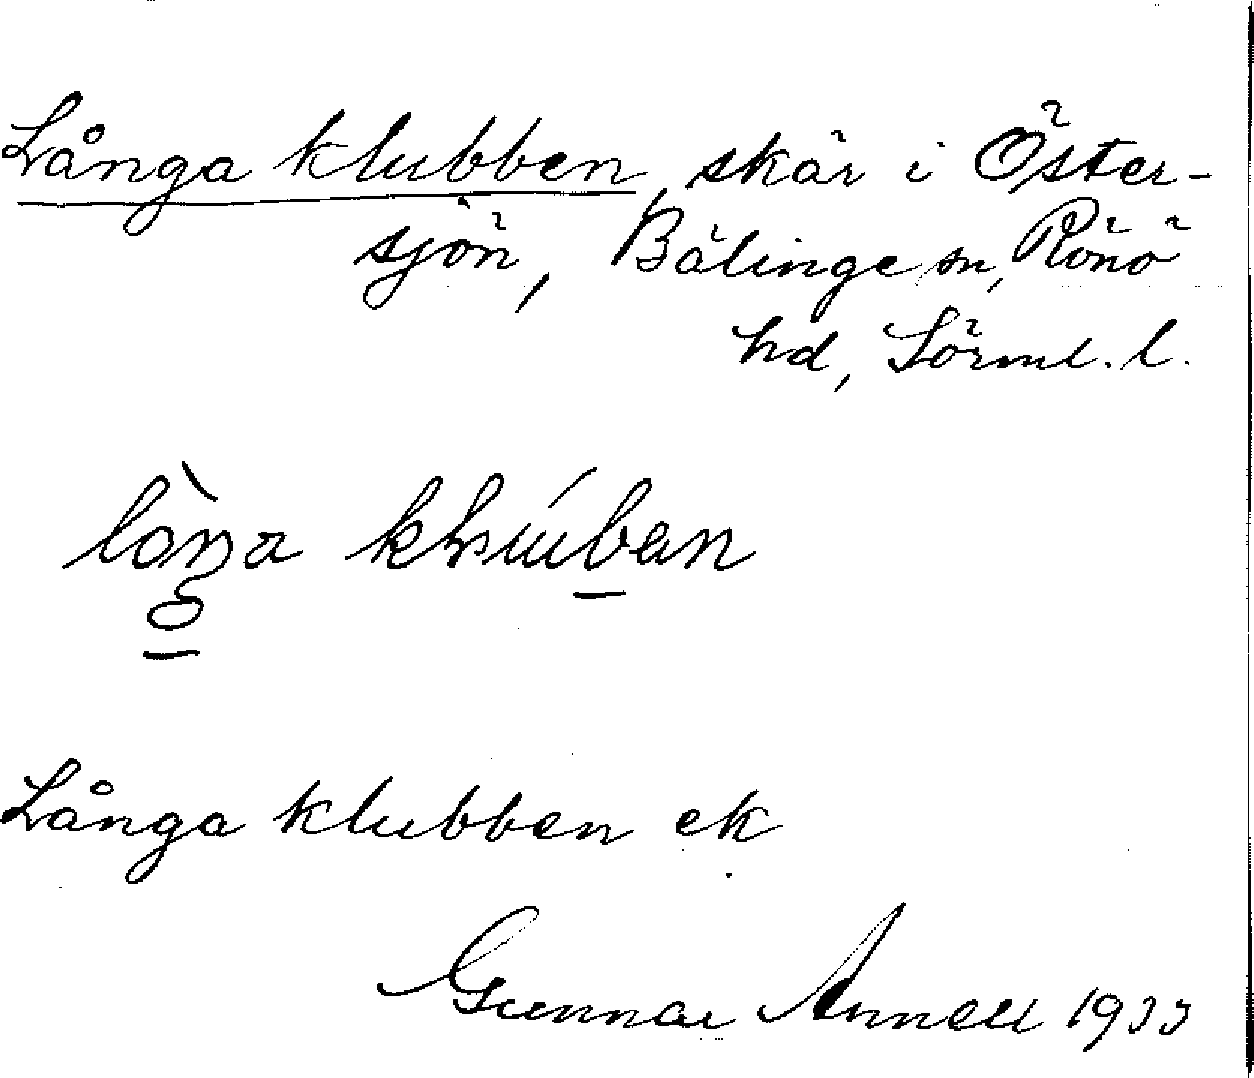 Långa klubben, skär i Öster-
sjön, Bälinge sn, Rönö
hd, Sörml. l.
Långa klubben ek
Gunnar Annell 1933